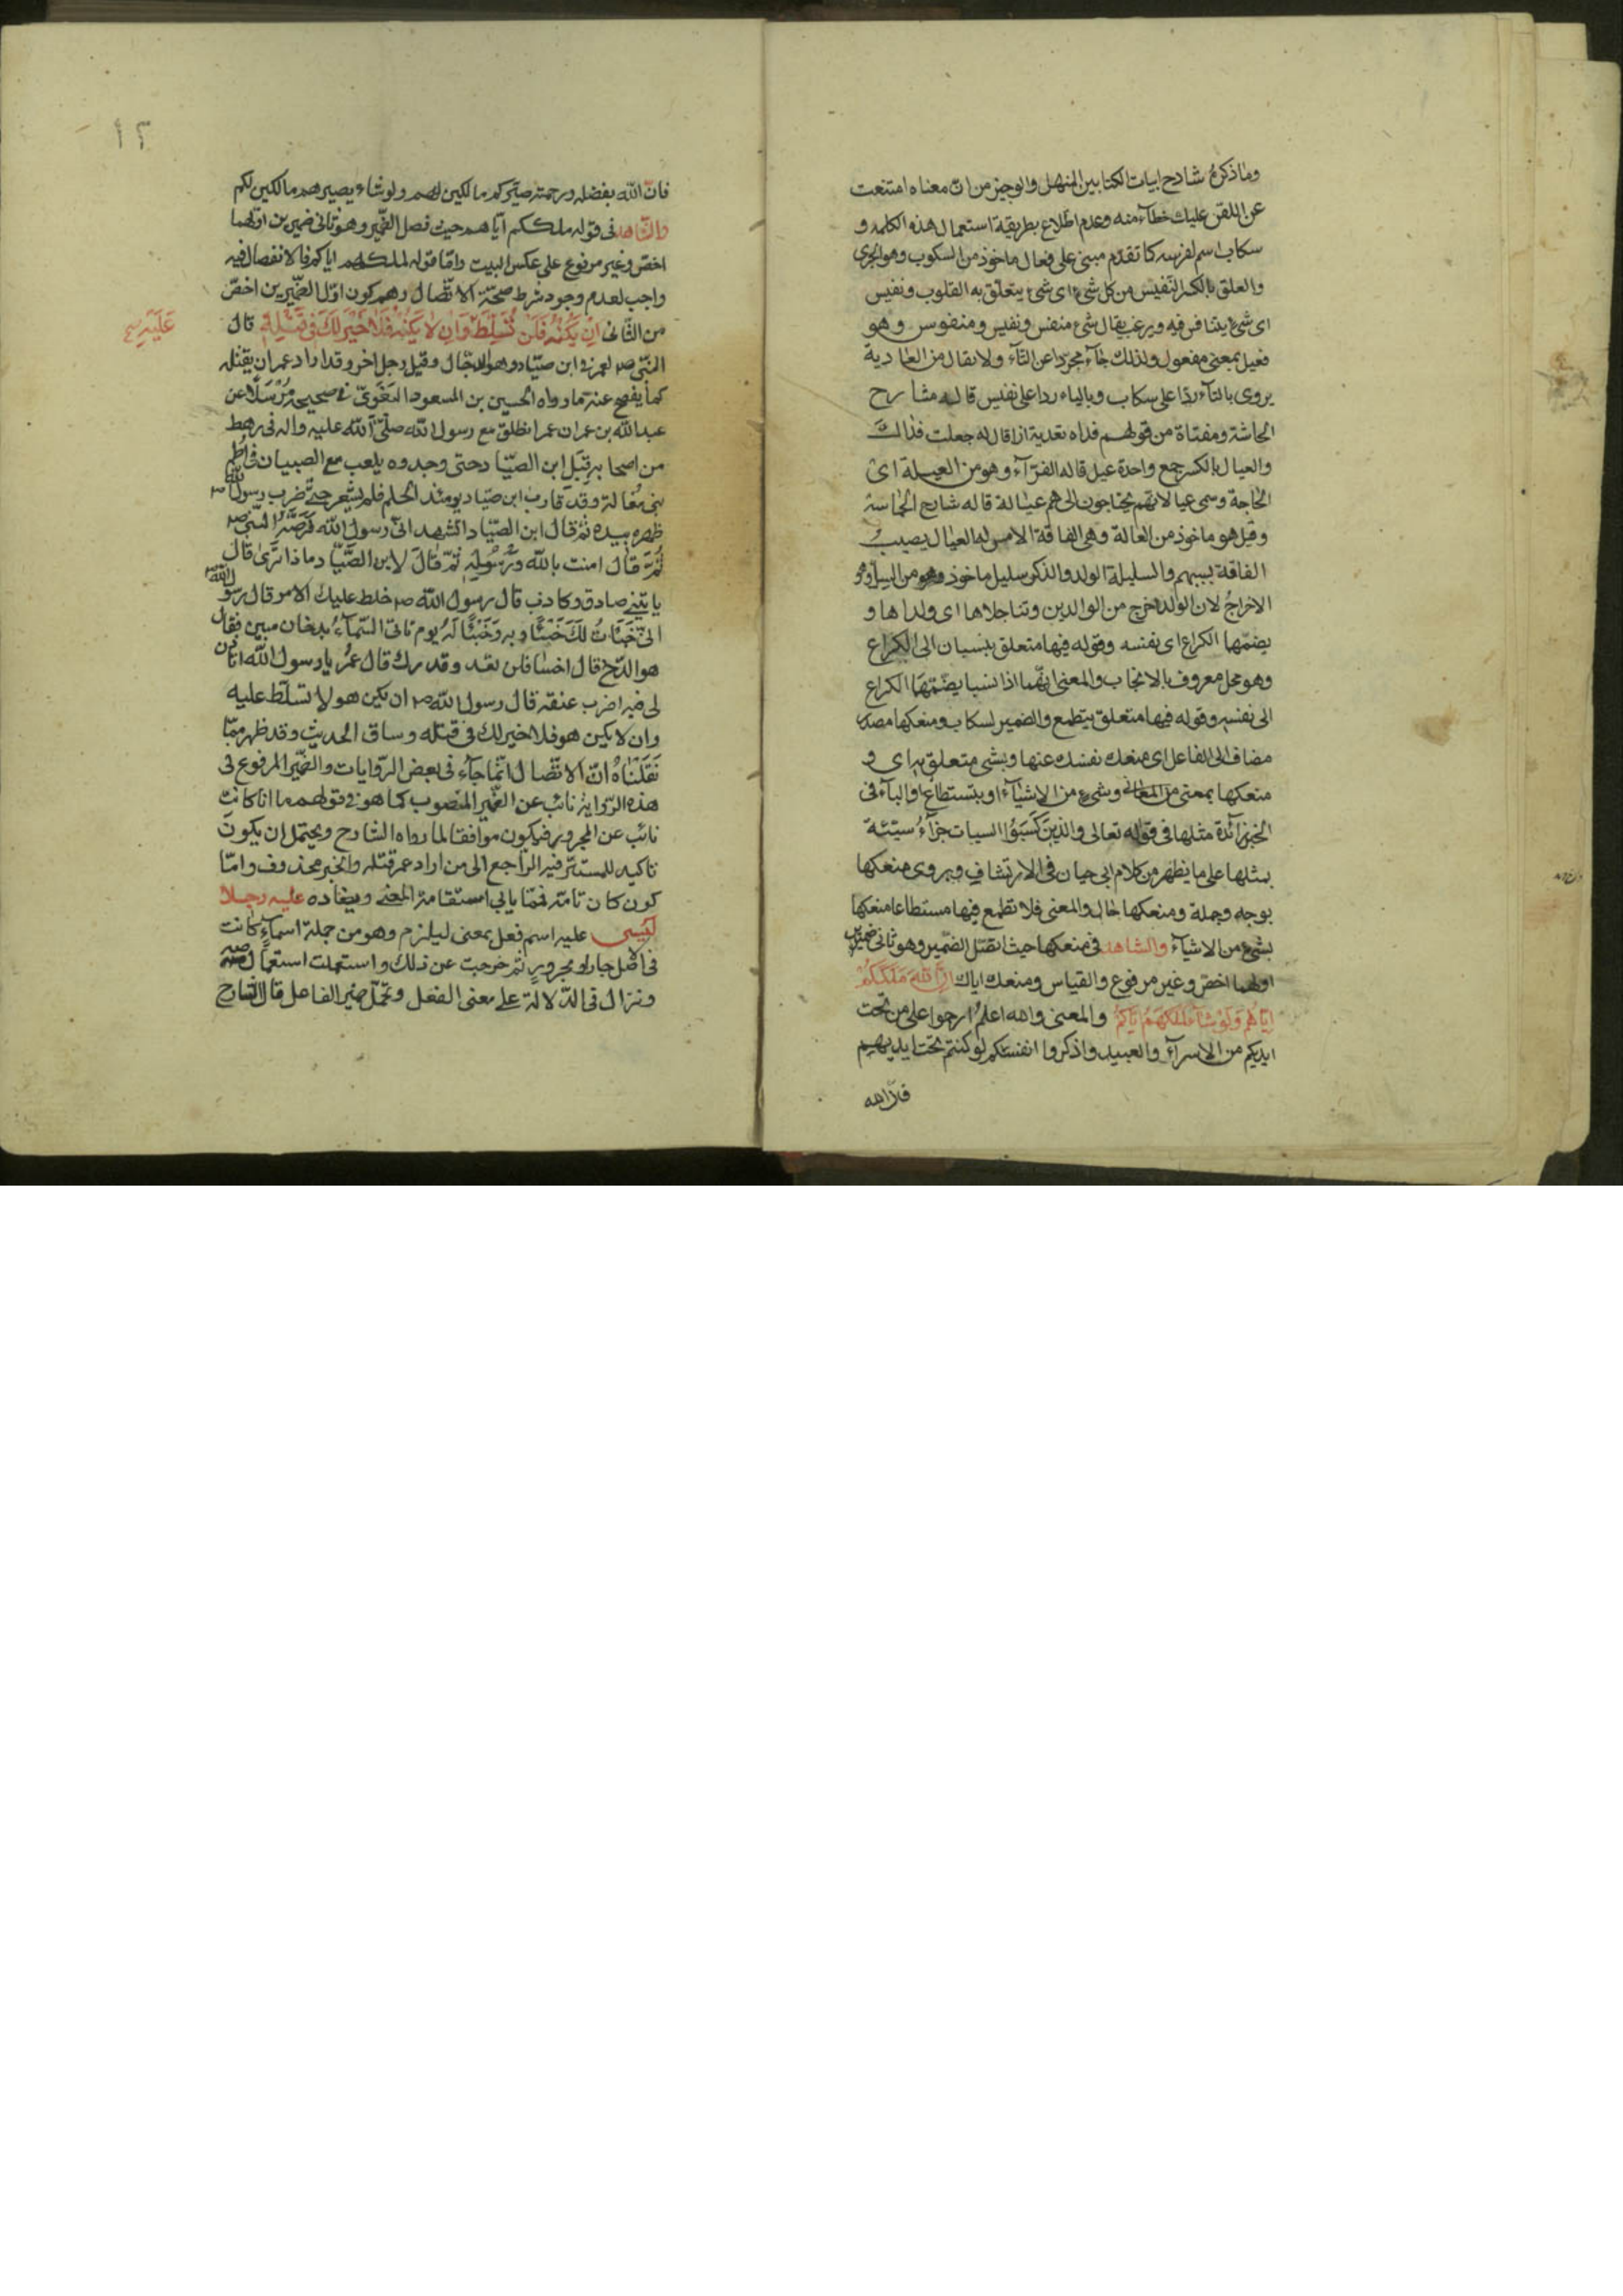 وما ذكره شارح ابيات الكتابين المنهل والوجيز من ان معناه امتنعت
عن اللقن عليك خطأ منه وعدم اطلاع بطريقة استعمال هذه الكلمه و
سكاب اسم لفرسه كما تقدم مبنى على فعال ماخوذ من السكوب وهو الجرى
والعلق بالكسر النفيس من كل شيء اى شيء يتعلق به القلوب ونفيس
اى شيء يتنافس فيه ويرغب يقال شيء منفس ونفيس ومنفوس وهو
فعيل بمعنى مفعول ولذلك جاء مجردا عن التآء ولا يقال من العادية
يروى بالتآء ردا على سكاب وبالياء ردا على نفيس قاله شارح
الحاشة ومفداة من قولهم فداه تفدية اذا قال له جعلت فداك
والعيال بالكسر جمع واحدة عيل قاله الفرآء وهو من العيلة اى
الحاجة وسمى عيالا لانهم يحتاجون الى هم عيالة قاله شارح الحماسة
وقيل هو ماخوذ من العالة وهى الفاقة الامس له العيال يصيب
الفاقة بسببهم والسليلة الولد والذكر سليل ماخوذ من السل وهو
الاخراج لان الولد اخرج من الوالدين وتناجلاها اى ولداها و
يضمها الكراع اى نفسه وقوله فيها متعلق ينسبان الى الكراع
وهو محل معروف بالانجاب والمعنى انهما اذا نسبا يضمها الكراع
الى نفسه وقوله فيها متعلق بتطمع والضمير لسكاب ومنعكها مصدر
مضاف الى الفاعل اى منعك نفسك عنها وبشى متعلق به اى و
منعكها بمعنى من المعانى وشىء من الاشيآء او يستطاع والبآء فى
الخبر زآئدة مثلها فى قوله تعالى والذين كسبوا السيات جزآء سيئة
بمثلها على ما يظهر من كلام ابى حيان فى الارتشاف ويروى منعكها
بوجه وجملة ومنعكها حال والمعنى فلا تطمع فيها مستطاعا منعكها
بشىء من الاشيآء والشاهد فى منعكها حيث اتصل الضمير وهو ثانى ضميرين
اولهما اخص وغير مرفوع والقياس ومنعك اياك ان الله ملككم
اياهم ولو شآء لملكهم اياكم والمعنى والله اعلم ارحموا على من تحت
ايديكم من الاسرآء والعبيد واذكروا انفسكم لو كنتم تحت ايديهم
١٢
فان الله بفضله ورحمته صيركم مالكين لهم ولو شاء يصيرهم مالكين لكم
والشاهد فى قوله ملككم اياهم حيث فصل الضمير وهو ثانى ضميرين اولهما
اخص وغير مرفوع على عكس البيت واما قوله لملكهم اياكم فالانفصال فيه
واجب لعدم وجود شرط صحة الاتصال وهو كون اول الضميرين اخص
من الثانى ان يكنه فلن تسلط وان لا يكنه فلا خير لك فى قتله قال
النبى ص لعمر فى ابن صياد وهو الدجال وقيل رجل اخر وقد اراد عمر ان يقتله
كما يفصح عنه ما رواه الحسين بن المسعود البغوى فى صحيحه مرسلا عن
عبد الله بن عمر ان عمر انطلق مع رسول الله صلى الله عليه واله فى رهط
من اصحابه قبل ابن الصياد حتى وجدوه يلعب مع الصبيان فى اطم
بنى مغالة وقد قارب ابن صياد يومئذ الحلم فلم يشعر حتى ضرب رسول الله ص
ظهره بيده ثم قال ابن الصياد اتشهد انى رسول الله فرصه النبى ص
ثم قال امنت بالله ورسوله ثم قال لابن الصياد ماذا ترى قال
ياتينى صادق وكاذب قال رسول الله ص خلط عليك الامر قال رسول الله ص
انى خبات لك خبئا وبه وخبئا له يوم تاتى السمآء بدخان مبين فقال
هو الدخ قال اخسا فلن تعد وقدرك قال عمر يا رسول الله اتاذن
لى فيه اضرب عنقه قال رسول الله ص ان يكن هو لا تسلط عليه
وان لا يكن هو فلا خير لك فى قتله وساق الحديث وقد ظهر مما
نقلناه ان الاتصال انما جآء فى بعض الروايات والضمير المرفوع فى
هذه الرواية نائب عن الضمير المنصوب كما هو فى قولهم ما انا كانت
نائب عن المجرور فيكون موافقا لما رواه الشارح ويحتمل ان يكون
تاكيد للمستتر فيه الراجع الى من اراد عمر قتله والخبر محذوف واما
كون كان تامة فمما يابى استقامة المعنى ويضاده عليه رجلا
ليسى عليه اسم فعل بمعنى ليلزم وهو من جملة اسمآء كانت
فى اصل جار او مجرور ثم خرجت عن ذلك واستعملت استعمال صه
ونزال فى الدلالة على معنى الفعل وتحمل ضمير الفاعل قال الشارح